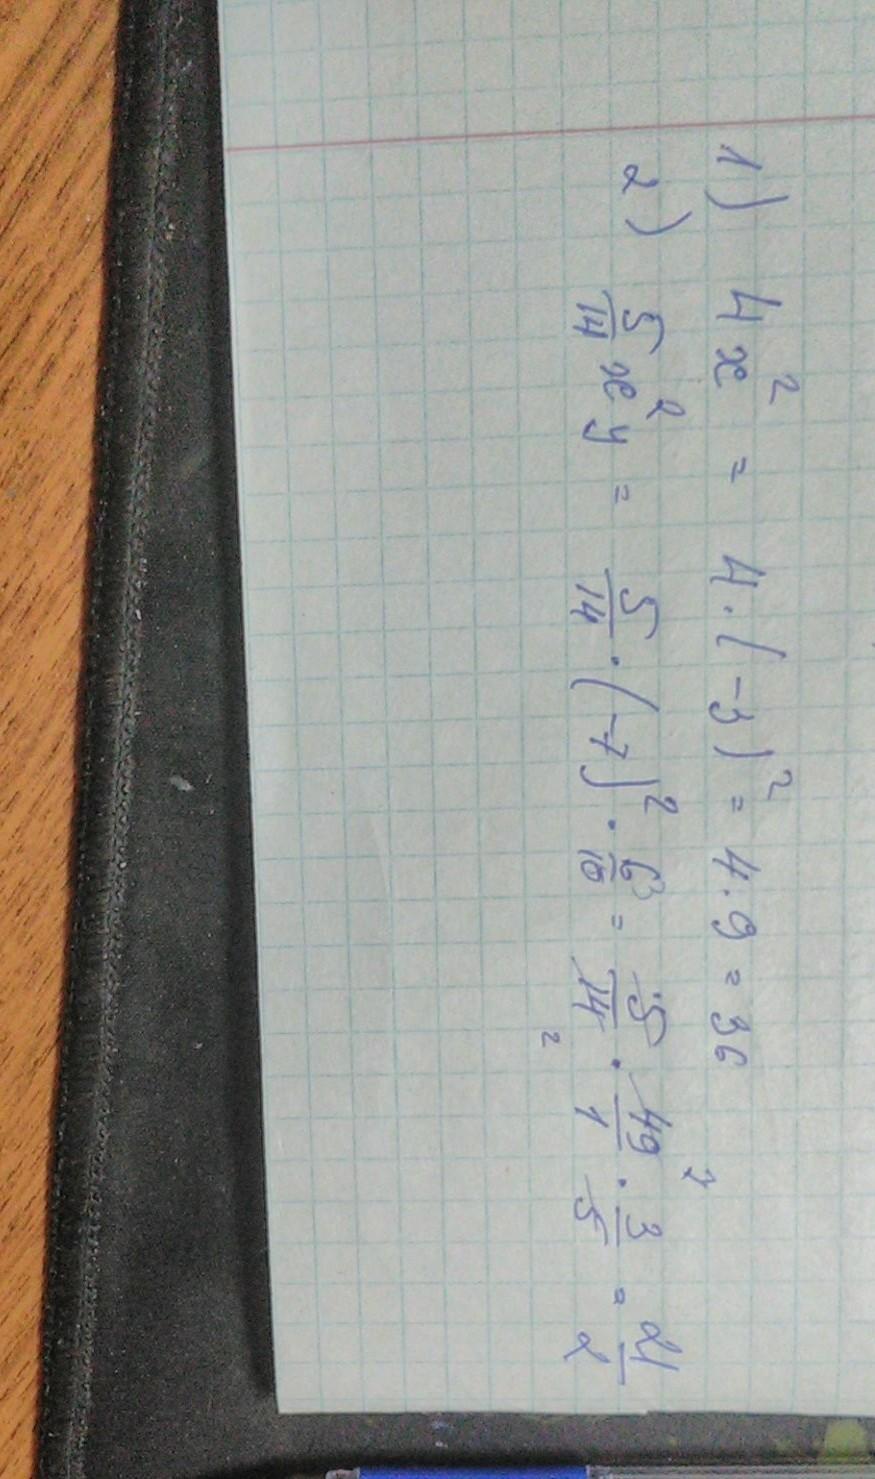 1) 4x² = 4·(-3)² = 4·9 = 36
2) 5/14 x²y = 5/14 · (-7)² · 6/10 = 5/14 · 49/1 · 3/5 = 21/2
7
2